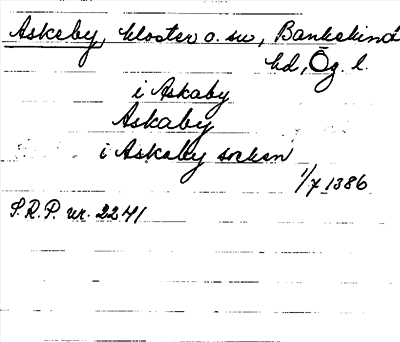 Askeby, kloster o. sn, Bankekind
hd, Ög. l.
i Askaby
Askaby
i Askaby sochen
1/7 1386
S.R.P. nr. 2241